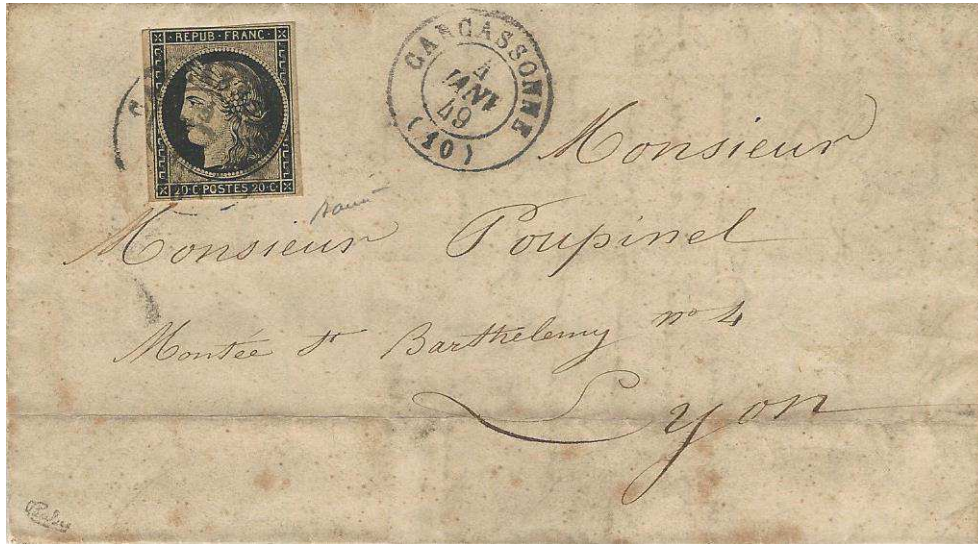 REPUB·FRANC·
20·C·POSTES·20·C·
CARCASSONNE
4
JANV
49
(10)
Monsieur
Monsieur Poupinel
Montée St Barthelemy no 4
Lyon